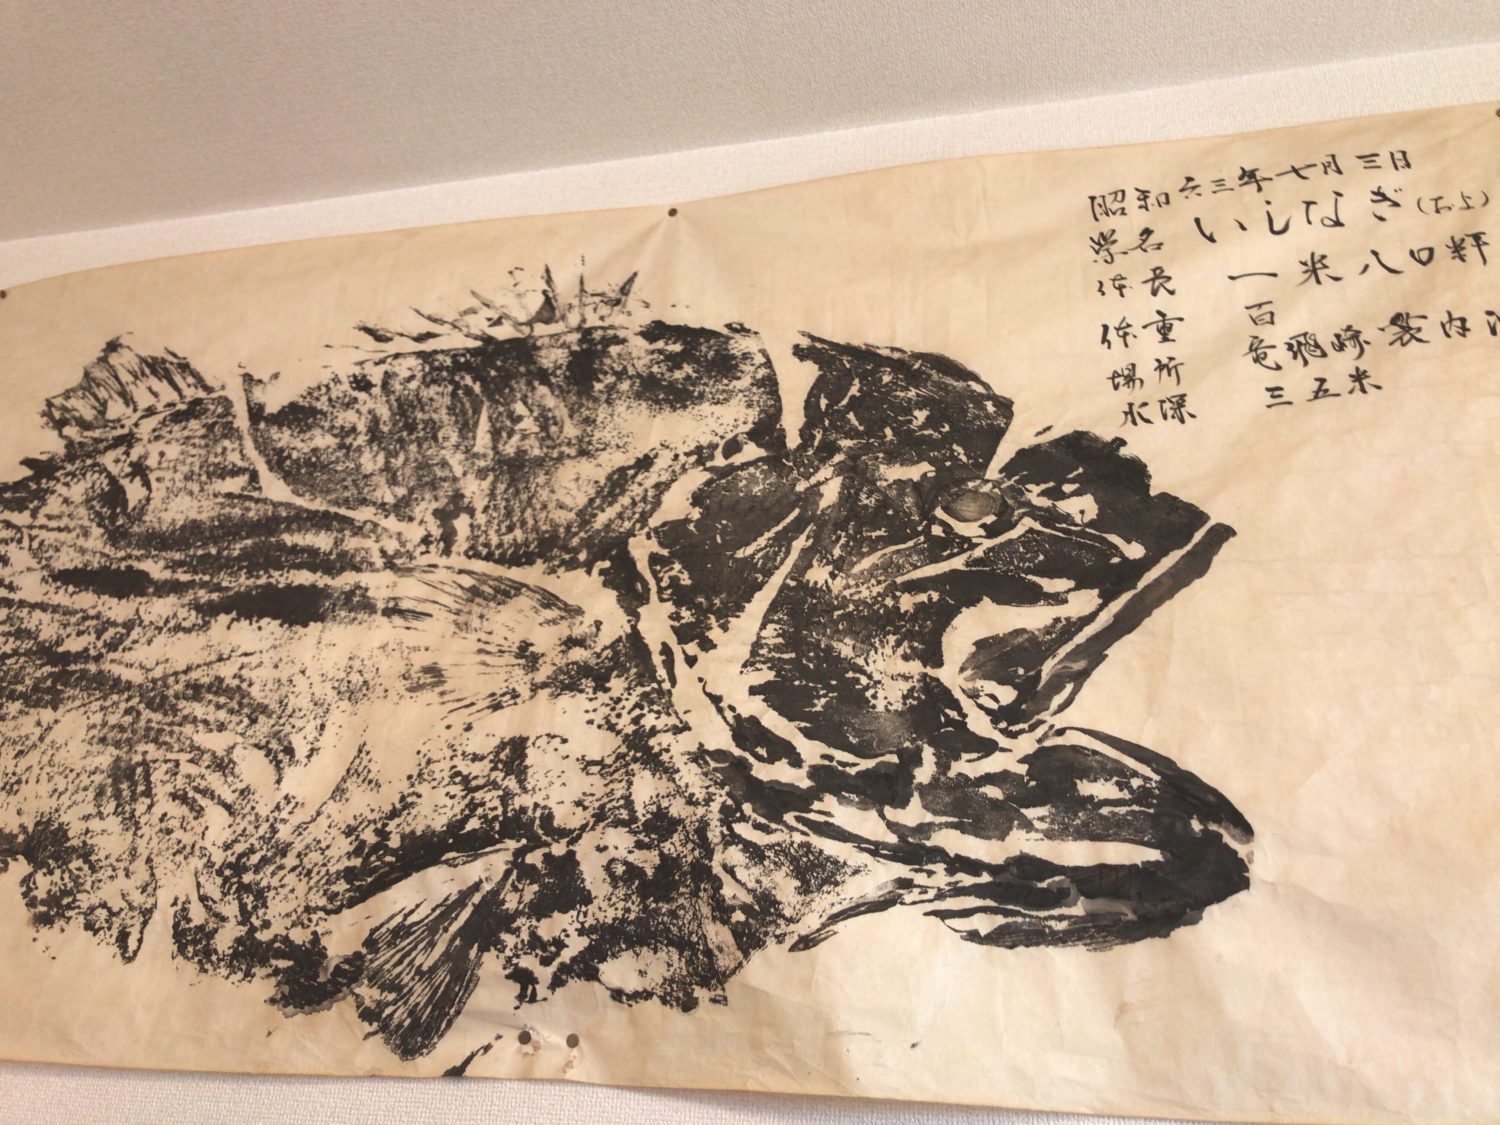 昭和六三年七月三日
学名 いしなぎ(およ)
体長 一米八〇糎
体重 百
場所 竜飛崎袋内
水深 三五米